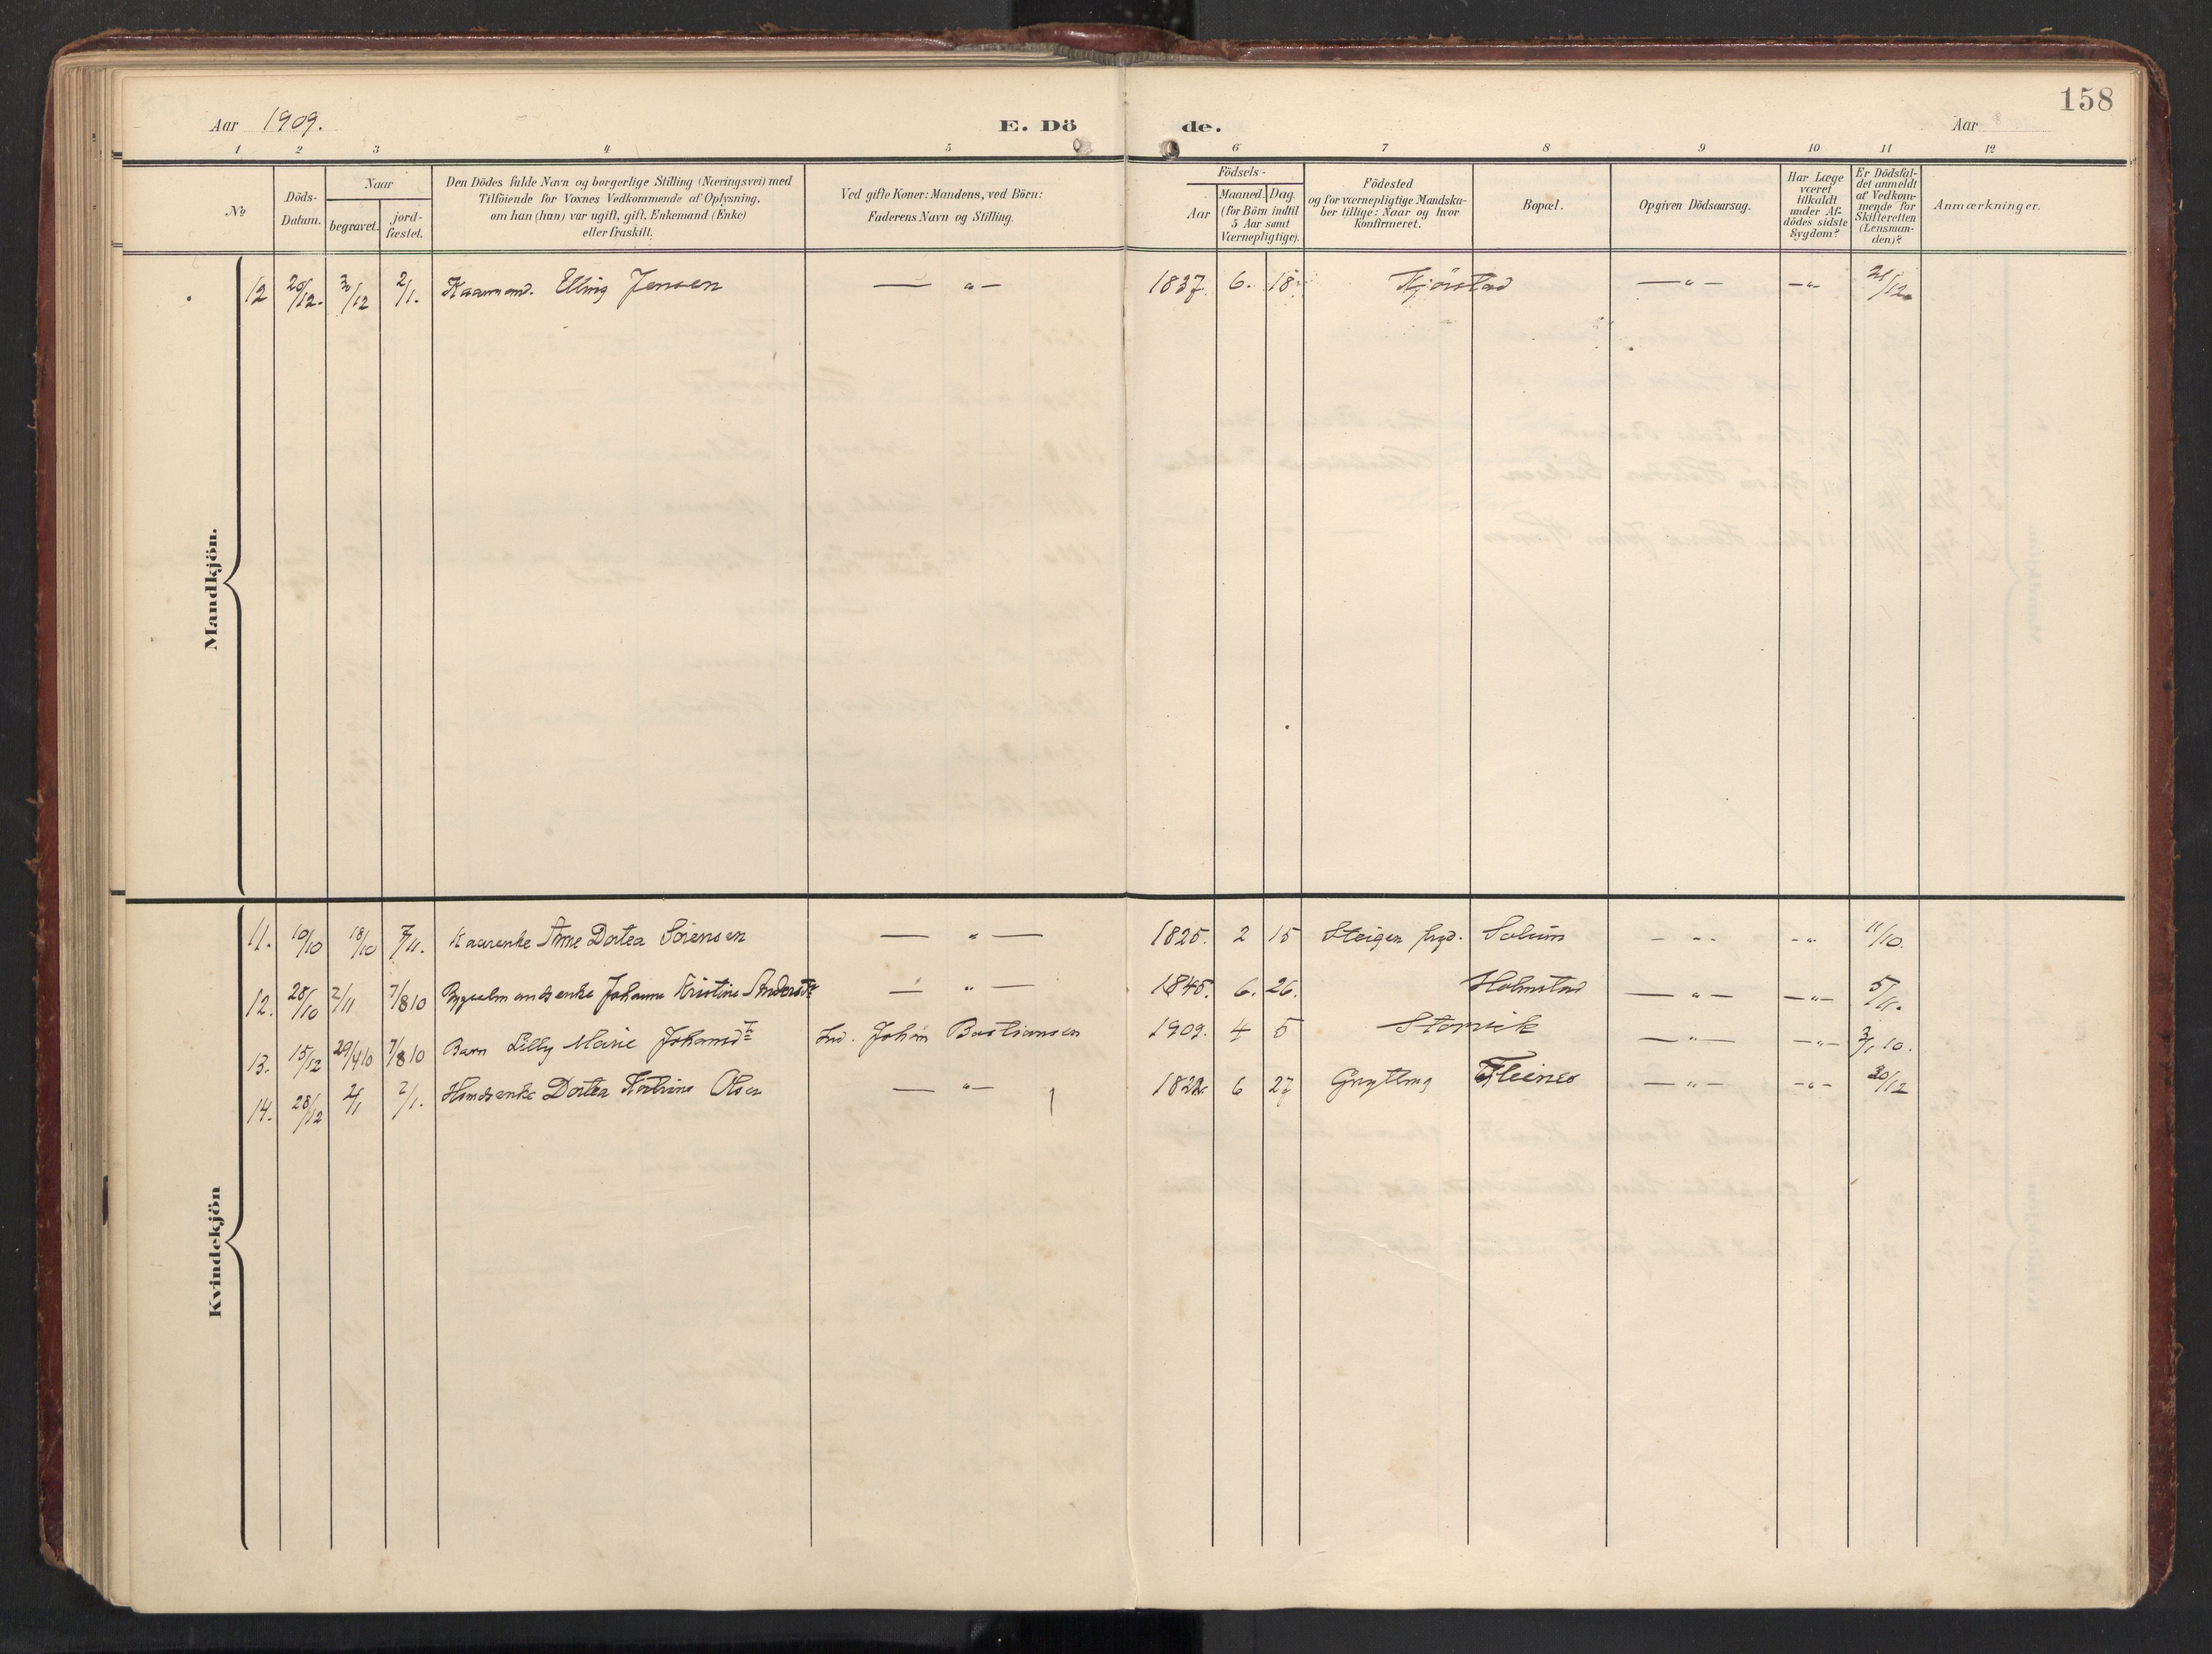 158
Aar 1909. E. Dö de. Aar
1 2 3 4 5 6 7 8 9 10 11 12
No
Döds-
Datum.
Naar
begravet.
jord-
fæstet.
Den Dödes fulde Navn og borgerlige Stilling (Næringsvei) med
Tilföiende for Voxnes Vedkommende af Oplysning,
om han (hun) var ugift, gift, Enkemand (Enke)
eller fraskilt.
Ved gifte Koner: Mandens, ved Börn:
Faderens Navn og Stilling.
Födsels-
Aar
Maaned. Dag.
(for Börn indtil
5 Aar samt
Værnepligtige).
Födested
og for værnepligtige Mandska-
ber tillige: Naar og hvor
konfirmeret.
Bopæl.
Opgiven Dödsaarsag.
Har Læge
været
tilkaldt
under Af-
dödes sidste
Sygdom?
Er Dödsfal-
det anmeldt
af Vedkom-
mende for
Skifteretten
(Lensman-
den)?
Anmærkninger.
Mandkjön.
12 20/12. 30/12 2/1. Kaarmand. Elling Jensen — " — 1837. 6. 18 Kjörstad — " — — " — 21/12
Kvindekjön
11. 10/10 18/10 7/11. Kaarenke Anne Dortea Sörensen — " — 1825. 2 15 Steigen Solum - " - - " - 11/10.
12. 28/10 2/11 7/8 10 Johanna Kristine — " — 1845. 6. 26. Holmstad — " — — " — 5/11.
13. 15/12 29/4 10 7/8 10 Barn Lilly Marie Johansdtr Ind. Johan Bastiansen 1909. 4 5 Storvik — " — — " — 3/1 10.
14. 28/12 2/1 2/1. Dortea Katrine Olsen — " — 1822 6 27 Grytting Fleines — " — - " - 30/12